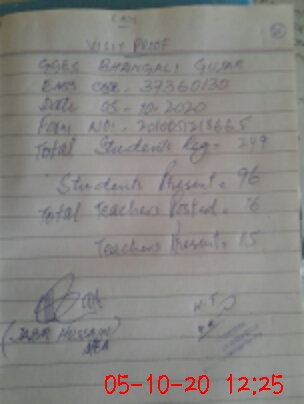 VISIT PROF
GGES BHANGALI GUJAR
EMIS CODE - 37360130
Date 05-10-2020
Form NO: - 
Total Students Reg = 249
Students Present = 96
Total Teachers Posted = 16
Teachers Present = 15
(JABIR HUSSAIN)
AEA
05-10-20 12:25